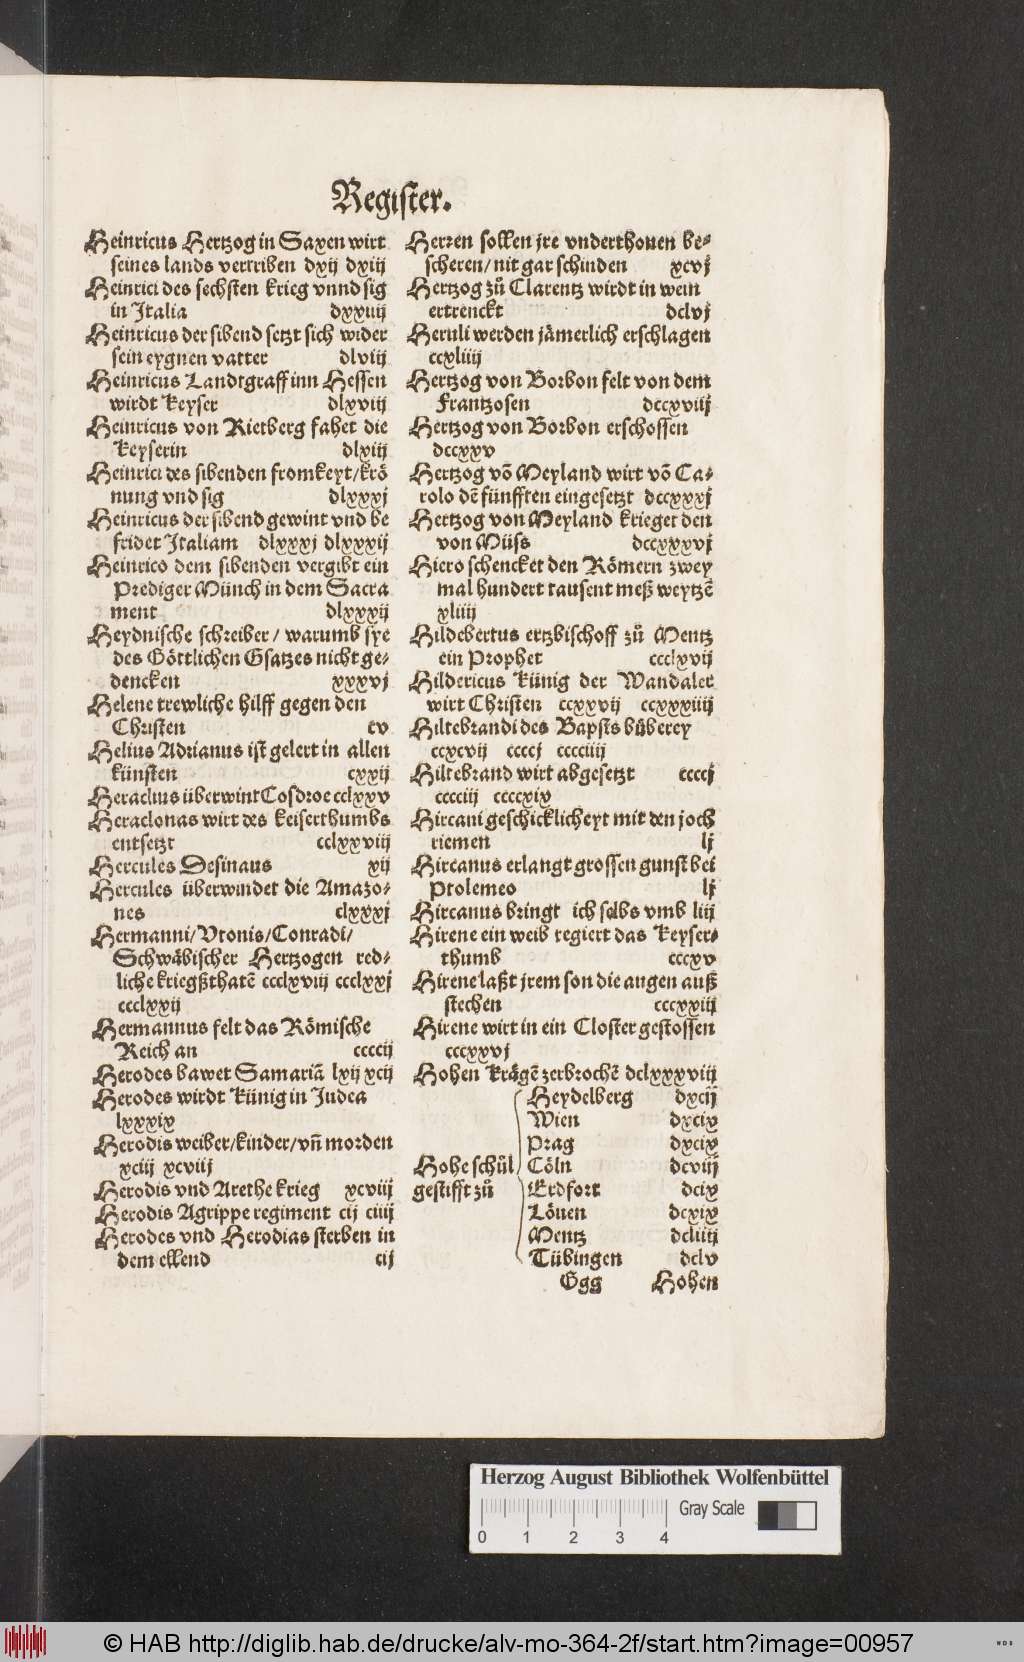 Register.
Heinricus Hertzog in Saxen wirt
seines lands vertriben dxij dxiij
Heinrici des sechsten krieg vnnd sig
in Italia dxxiiij
Heinricus der sibend setzt sich wider
sein eygnen vatter dlviij
Heinricus Landtgraff inn Hessen
wirdt keyser dlxviij
Heinricus von Rietberg fahet die
Keyserin dlxiij
Heinrici des sibenden fromkeyt/krö
nung vnd sig dlxxxj
Heinricus der sibend gewint vnd be
fridet Italiam dlxxxj dlxxxij
Heinrico dem sibenden vergibt ein
Prediger Münch in dem Sacra
ment dlxxxij
Heydnische schreiber/ warumb sye
des Göttlichen Gsatzes nicht ge-
dencken xxxvj
Helene trewliche hilff gegen den
Christen cv
Helius Adrianus ist gelert in allen
künsten cxxij
Heraclius überwint Cosdroe cclxxv
Heraclonas wirt des keiserthumbs
entsetzt cclxxviij
Hercules Desinaus xij
Hercules überwindet die Amazo-
nes clxxxj
Hermanni/Vtonis/Conradi/
Schwäbischer Hertzogen red-
liche kriegßthatē ccclxviij ccclxxj
ccclxxij
Hermannus felt das Römische
Reich an ccccij
Herodes bawet Samariā lxij xcij
Herodes wirdt Künig in Judea
lxxxix
Herodis weiber/kinder/vn̄ morden
xciij xcviij
Herodis vnd Arethe krieg xcviij
Herodis Agrippe regiment cij ciiij
Herodes vnd Herodias sterben in
dem ellend cij
Herren sollen jre vnderthonen be-
scheren/nit gar schinden xcvj
Hertzog zů Clarentz wirdt in wein
ertrenckt dclvj
Heruli werden jämerlich erschlagen
ccxliiij
Hertzog von Borbon felt von dem
Frantzosen dccxviij
Hertzog von Borbon erschossen
dccxxv
Hertzog vō Meyland wirt vō Ca-
rolo dē fünfften eingesetzt dccxxxj
Hertzog von Meyland krieget den
von Müss dccxxxvj
Hiero schencket den Römern zwey
mal hundert tausent meß weytzē
xliiij
Hildebertus ertzbischoff zů Mentz
ein Prophet ccclxvij
Hildericus Künig der Wandaler
wirt Christen ccxxvij ccxxxiiij
Hiltebrandi des Bapsts büberey
ccxcvij ccccj cccciiij
Hiltebrand wirt abgesetzt ccccj
cccciij ccccxix
Hircani geschicklicheyt mit den joch
riemen lj
Hircanus erlangt grossen gunst bei
Ptolemeo lj
Hircanus bringt sich selbs vmb liij
Hirene ein weib regiert das Keyser-
thumb cccxv
Hirene laßt jrem son die augen auß
stechen cccxxiij
Hirene wirt in ein Closter gestossen
cccxxvj
Hohen Krägē zerbrochē dclxxxviij
Heydelberg dxcij
Wien dxcix
Prag dxcix
Hohe schůl Cöln dcviij
gestifft zů Erdfort dcix
Löuen dcxix
Mentz dcliiij
Tübingen dclv
Ggg Hohen
Herzog August Bibliothek Wolfenbüttel
Gray Scale
0 1 2 3 4
© HAB http://diglib.hab.de/drucke/alv-mo-364-2f/start.htm?image=00957